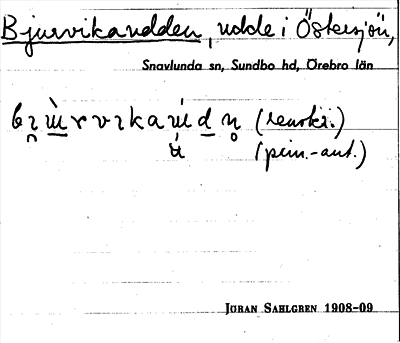 Bjurvikaudden, udde i Östersjön,
Snavlunda sn, Sundbo hd, Örebro län
(renskr.)
(prim.-ant.)
JÖRAN SAHLGREN 1908-09